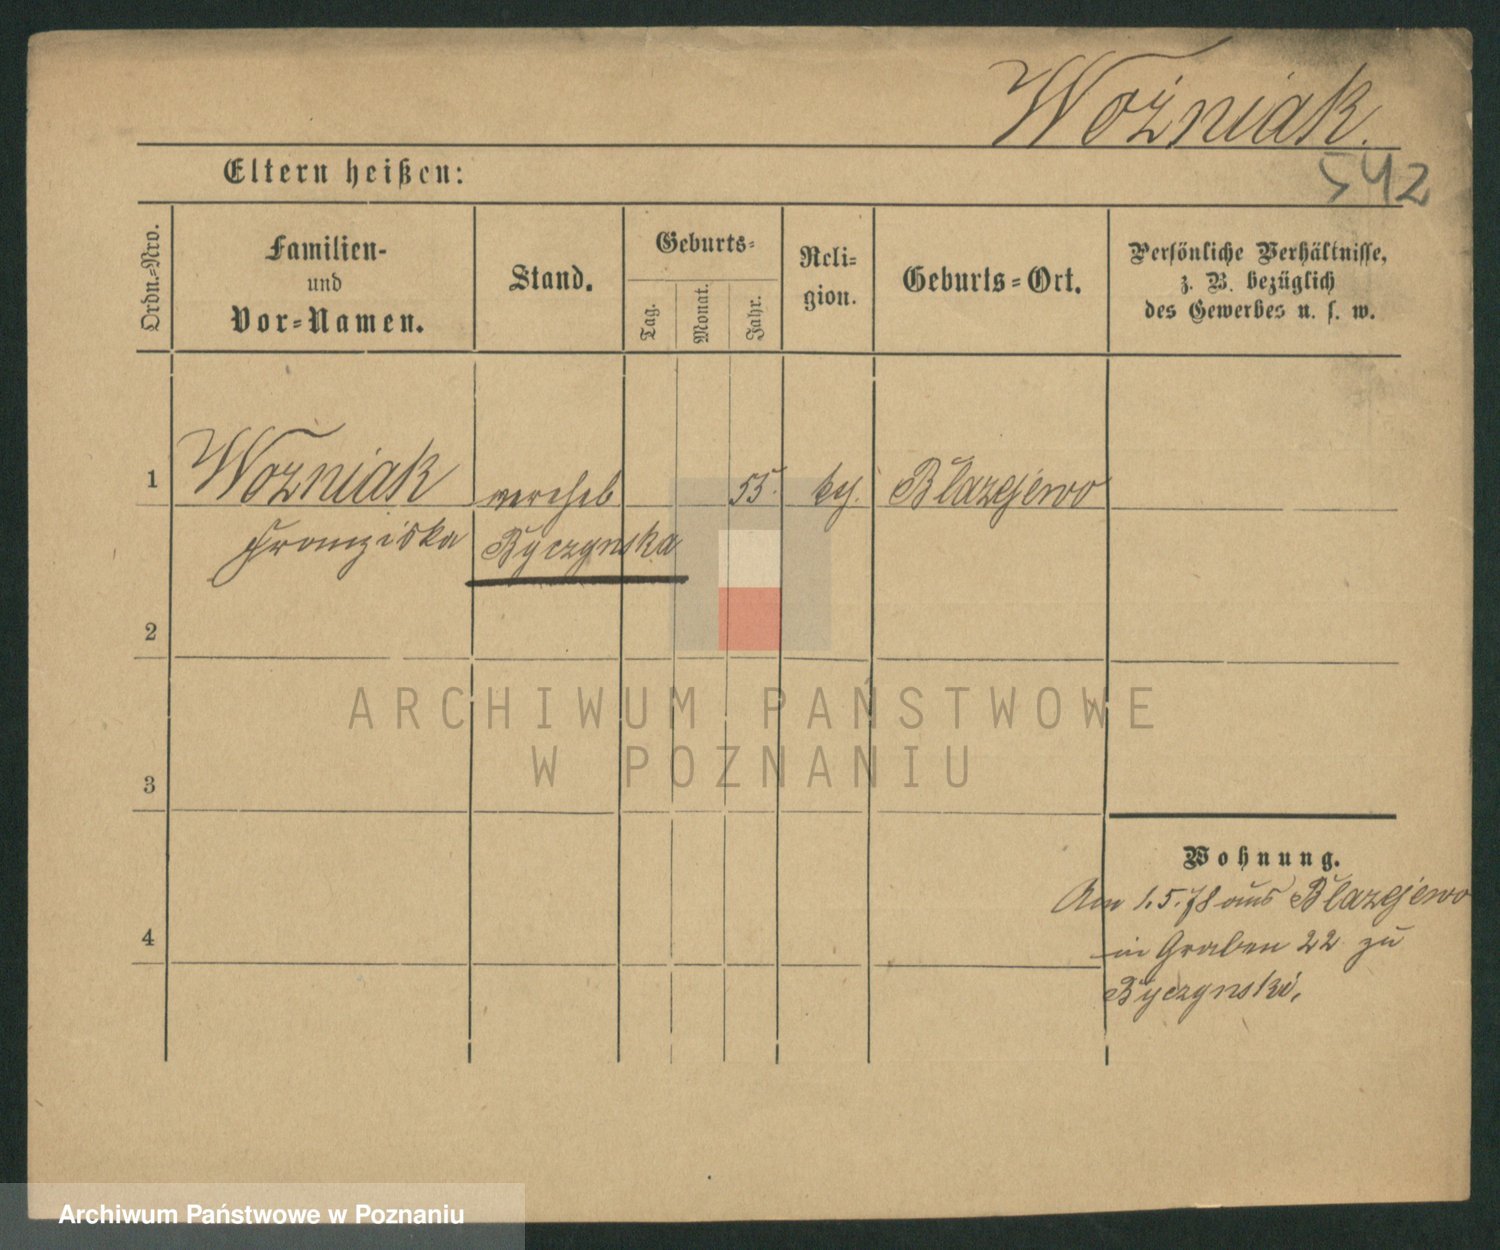 Woźniak.
542
Eltern heißen:
Ordn.-Nro.
Familien-
und
Vor-Namen.
Stand.
Geburts-
Tag.
Monat.
Jahr.
Reli-
gion.
Geburts-Ort.
Persönliche Verhältnisse,
z. B. bezüglich
des Gewerbes u. s. w.
1
Wozniak
verehel
55.
Blazejewo
Franziska
Byczynska
2
3
4
Wohnung.
Am 1.5.78 aus Blazejewo
in Graben 22 zu
Byczynski,
ARCHIWUM PAŃSTWOWE
W POZNANIU
Archiwum Państwowe w Poznaniu